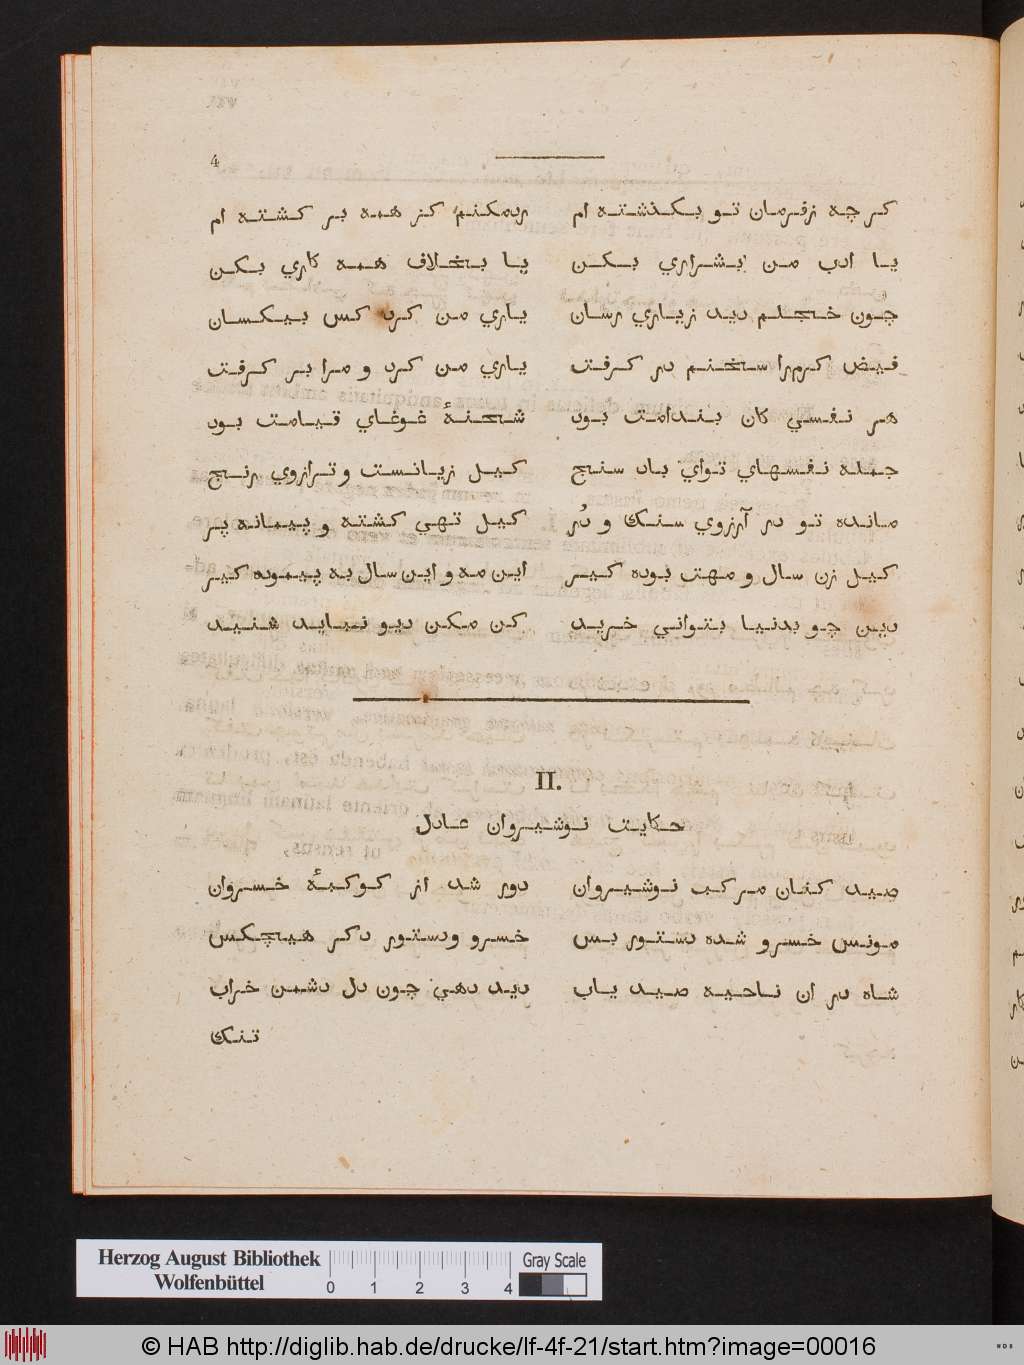 4
كر چه زفرمان تو بكذشته ام ردمكنم كز همه بر كشته ام
يا ادب من بشراري بكن يا بخلاف همه كاري بكن
چون خجلم ديد زياري رسان ياري من كرد كس بيكسان
فيض كرمرا سخنم در كرفت ياري من كرد و مرا بر كرفت
هر نفسي كان بندامت بود شحنهٔ غوغاي قيامت بود
جمله نفسهاي تواي باد سنج كيل زيانست و ترازوي رنج
مانده تو در آرزوي سنك و دُر كيل تهي كشته و پيمانه پر
كيل زن سال و مهت بوده كير اين مه و اين سال به پيموده كير
دين چو بدنيا بتواني خريد كن مكن ديو نبايد شنيد
II.
حكايت نوشيروان عادل
صيد كنان مركب نوشيروان دور شد از كوكبهٔ خسروان
مونس خسرو شده دستور بس خسرو ودستور دكر هيچكس
شاه در ان ناحيه صيد ياب ديد دهي چون دل دشمن خراب
تنك
Herzog August Bibliothek
Wolfenbüttel
0 1 2 3 4
Gray Scale
© HAB http://diglib.hab.de/drucke/lf-4f-21/start.htm?image=00016